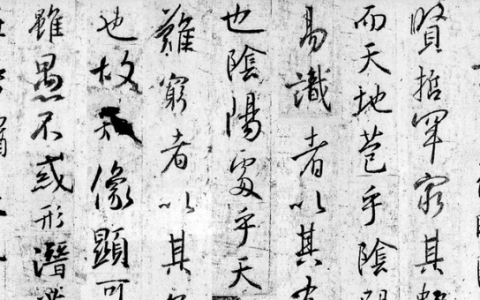 賢哲罕窮其數
而天地苞乎陰陽
易識者以其有
也陰陽處乎天
難窮者以其
也故知像顯可
雖愚不惑形潛莫